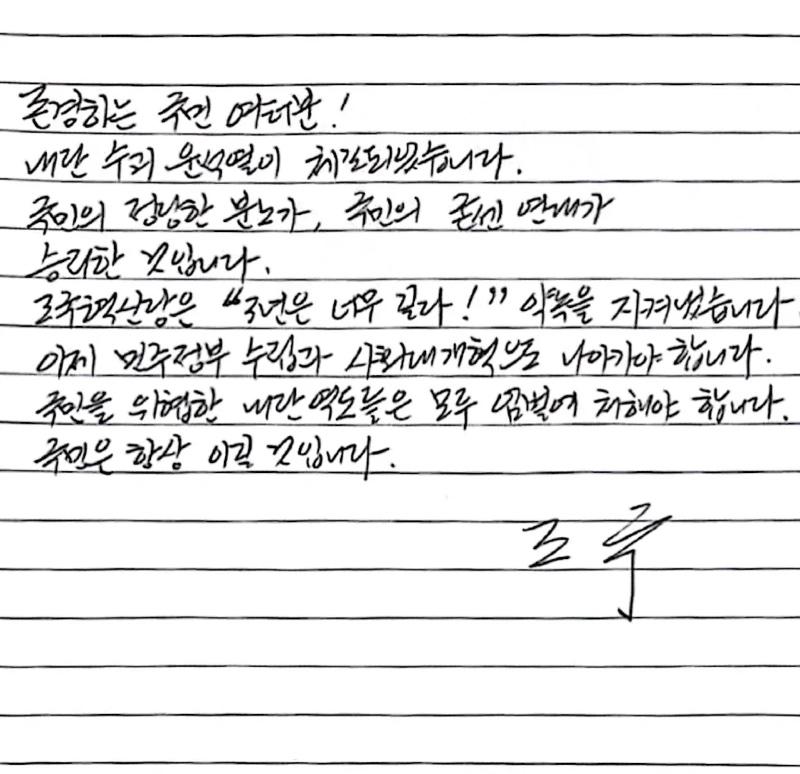 존경하는 국민 여러분!
내란 수괴 윤석열이 체포되었습니다.
국민의 정당한 분노가, 국민의 굳센 연대가
승리한 것입니다.
조국혁신당은 "3년은 너무 길다!" 약속을 지켜냈습니다
이제 민주정부 수립과 사회대개혁으로 나아가야 합니다.
국민을 위협한 내란 역도들은 모두 엄벌에 처해야 합니다.
국민은 항상 이길 것입니다.
조국